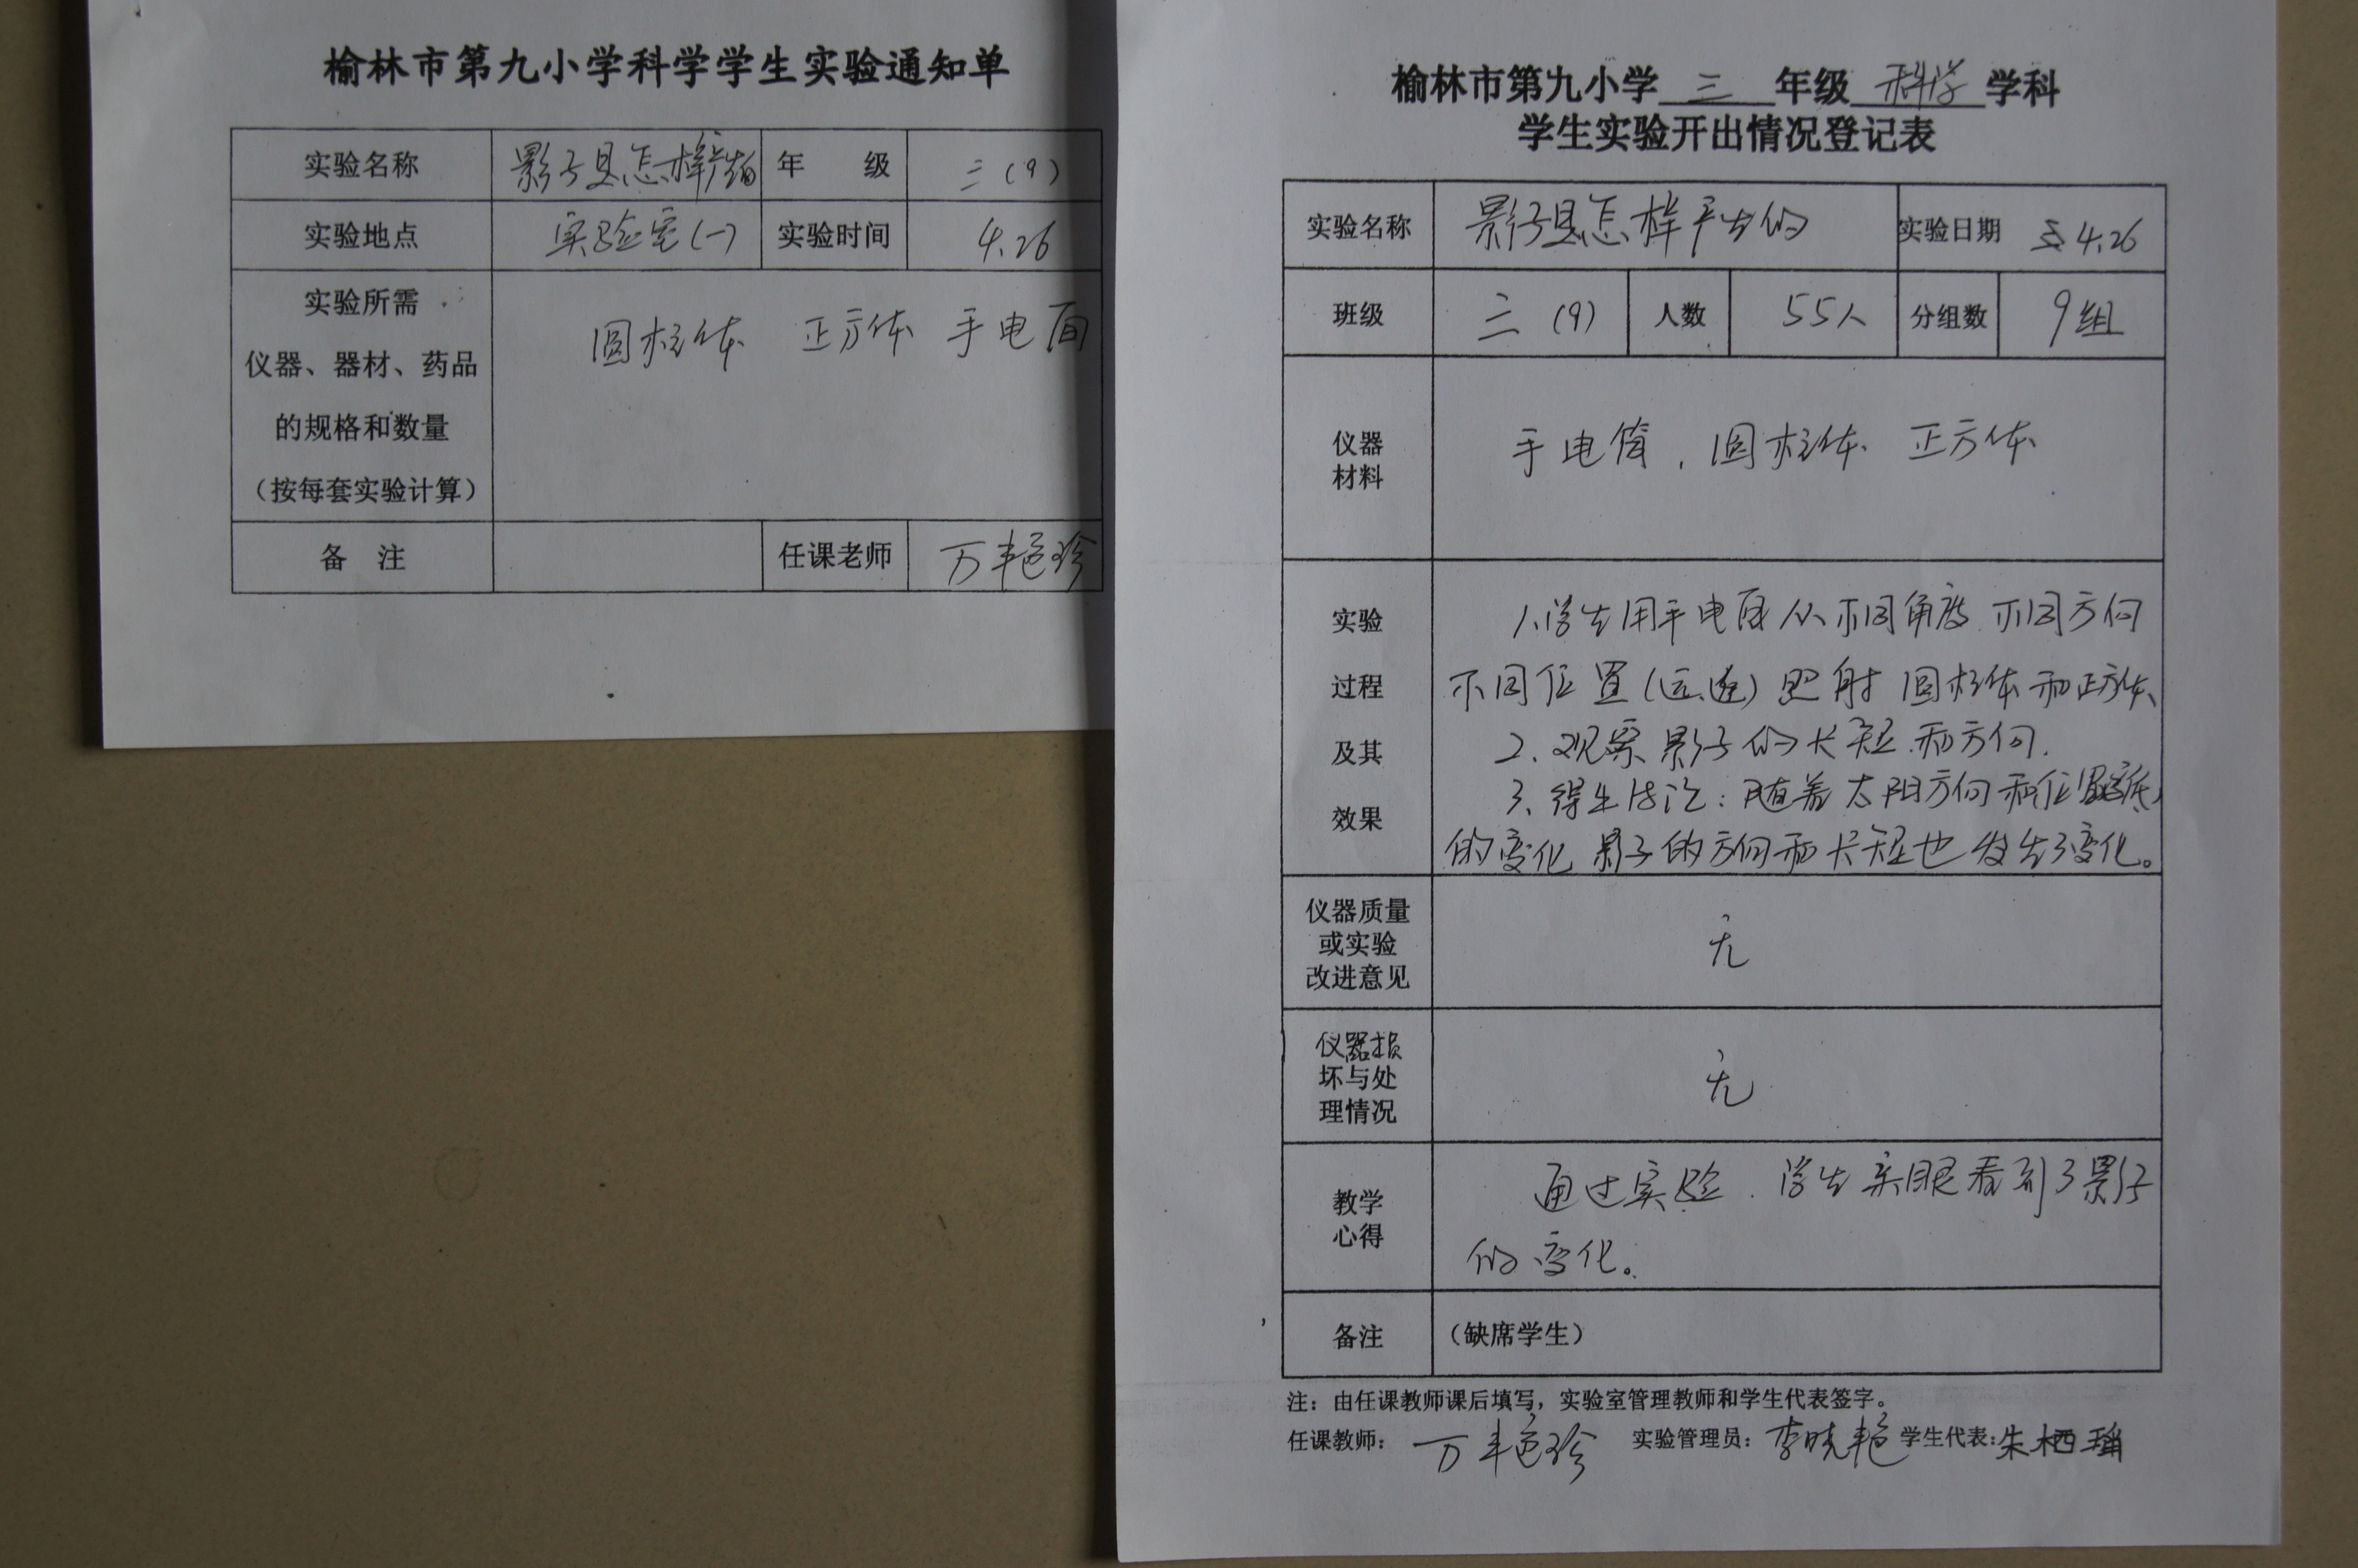 榆林市第九小学科学学生实验通知单
实验名称 影子是怎样产生的 年 级 三(9)
实验地点 实验室(一) 实验时间 4.26
实验所需
仪器、器材、药品
的规格和数量
(按每套实验计算)
圆柱体 正方体 手电筒
备 注 任课老师 万艳珍
榆林市第九小学 三 年级 科学 学科
学生实验开出情况登记表
实验名称 影子是怎样产生的 实验日期 4.26
班级 三(9) 人数 55人 分组数 9组
仪器
材料
手电筒, 圆柱体 正方体
实验
过程
及其
效果
1.学生用手电筒从不同角度 不同方向
不同位置(远、近)照射 圆柱体和正方体、
2、观察影子的长短和方向.
3、得出结论:随着太阳方向和位置
的变化 影子的方向和长短也发生了变化。
仪器质量
或实验
改进意见
无
仪器损
坏与处
理情况
无
教学
心得
通过实验.学生亲眼看到了影子
的变化。
备注 (缺席学生)
注:由任课教师课后填写,实验室管理教师和学生代表签字。
任课教师: 万艳珍 实验管理员: 李晓艳 学生代表:朱栖